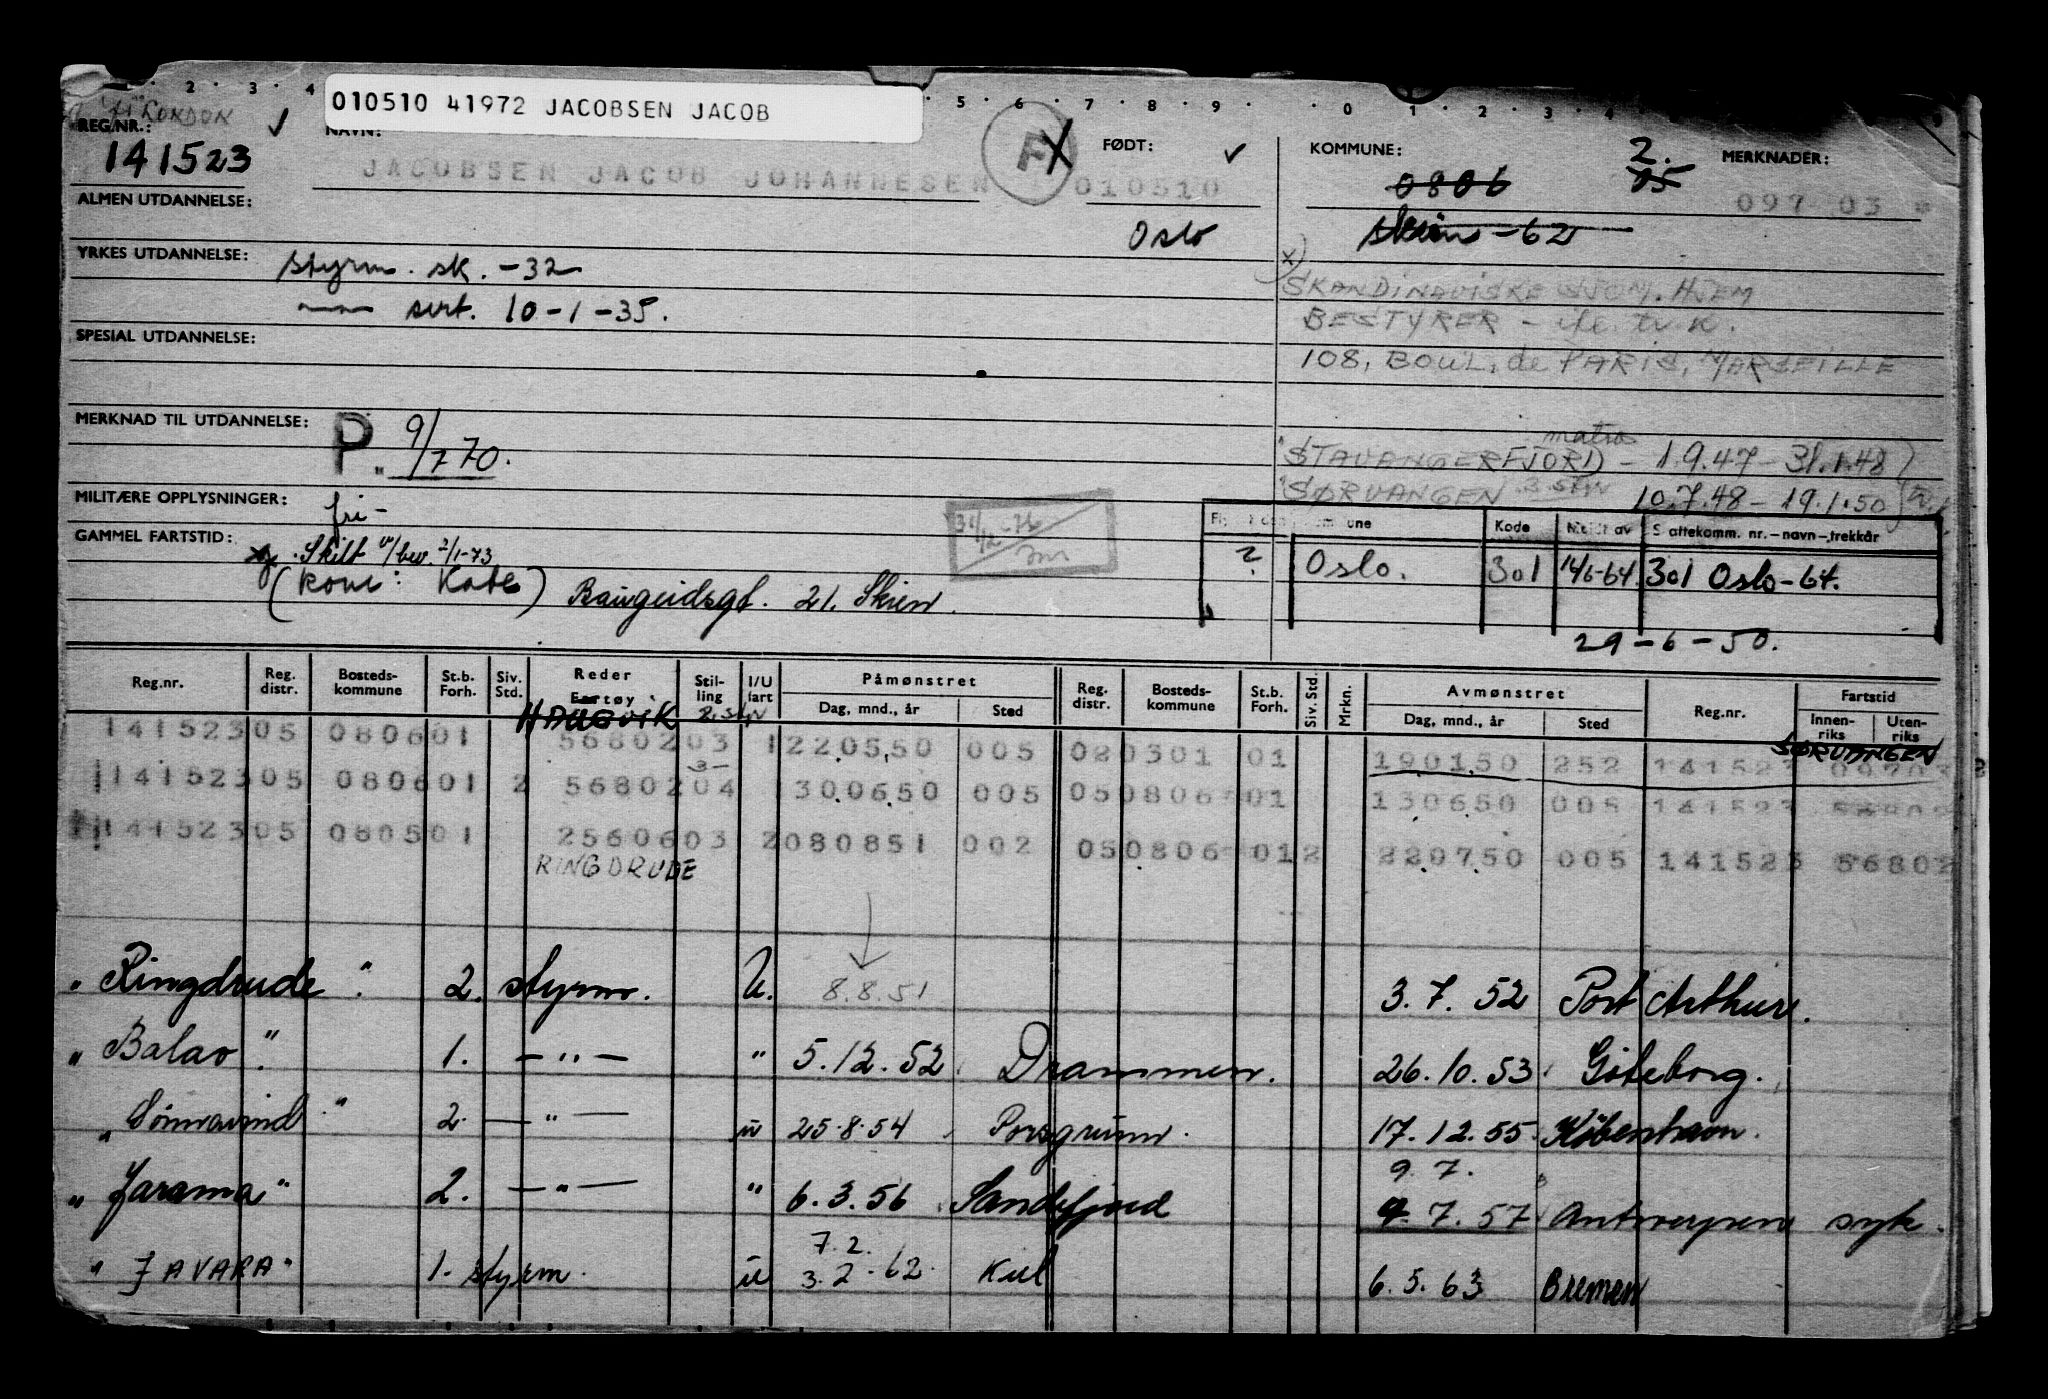 010510 41972 JACOBSEN JACOB
LONDON
REG.NR.: NAVN: FØDT: KOMMUNE: 2. MERKNADER:
141523 JACOBSEN JACOB JOHANNESEN F 010510 0806 05 097 03
ALMEN UTDANNELSE: Oslo Skien -62
YRKES UTDANNELSE: styrm. sk. -32 x)
sert. 10-1-35.
SKANDINAVISKE SJØM. HJEM
BESTYRER
SPESIAL UTDANNELSE:
108, BOUL. de PARIS, MARSEILLE
MERKNAD TIL UTDANNELSE: P. 9/7 70.
matros
STAVANGERFJORD - 1.9.47 - 31.1.48
SØRVANGEN 3 STM 10.7.48 - 19.1.50
MILITÆRE OPPLYSNINGER: fri -
GAMMEL FARTSTID:
Skilt v/bev. 2/1-73
31/12-76
(kone: Kate) Baugeidsgt. 21. Skien.
Kode Meldt av Skattekomm. nr.-navn-trekkår
2. Oslo. 301 14/6-64. 301 Oslo-64.
29-6-50.
Reg.nr. Reg. distr. Bosteds-kommune St.b. Forh. Siv. Std. Reder Fartøy Stil-ling I/U fart Påmønstret Dag, mnd., år Sted Reg. distr. Bosteds-kommune St.b. Forh. Siv. Std. Mrkn. Avmønstret Dag, mnd., år Sted Reg.nr. Fartstid Innen-riks Uten-riks
HAUGVIK 2. STM SØRVANGEN
141523 05 0806 01 56802 03 1 220550 005 02 0301 01 190150 252 141523 09703
3-
141523 05 0806 01 2 56802 04 1 300650 005 05 0806 01 130650 005 141523 56802
141523 05 0805 01 25606 03 2 080851 002 05 0806 01 2 220750 005 141523 56802
RINGDRUDE
"Ringdrude" 2. styrm. U. 8.8.51 3.7.52 Port Arthur.
"Balao" 1. -"- " 5.12.52 Drammen. 26.10.53 Göteborg.
"Sönnavind" 2. -"- u 25.8.54 Porsgrunn. 17.12.55 København.
9.7.
"Jarama" 2. -"- " 6.3.56 Sandefjord 9.7.57 Antwerpen syk.
7.2.
"JAVARA" 1. styrm. u 3.2.62. Kiel 6.5.63 Bremen